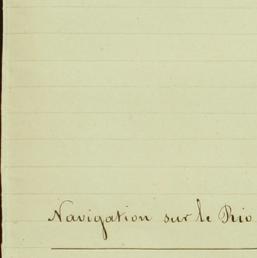 Navigation sur le Rio